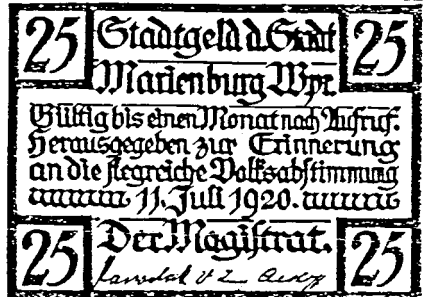 25 Stadtgeld d. Stadt 25
Marienburg Wpr.
Gültig bis einen Monat nach Aufruf.
Herausgegeben zur Erinnerung
an die siegreiche Volksabstimmung
11. Juli 1920.
Der Magistrat.
25 25